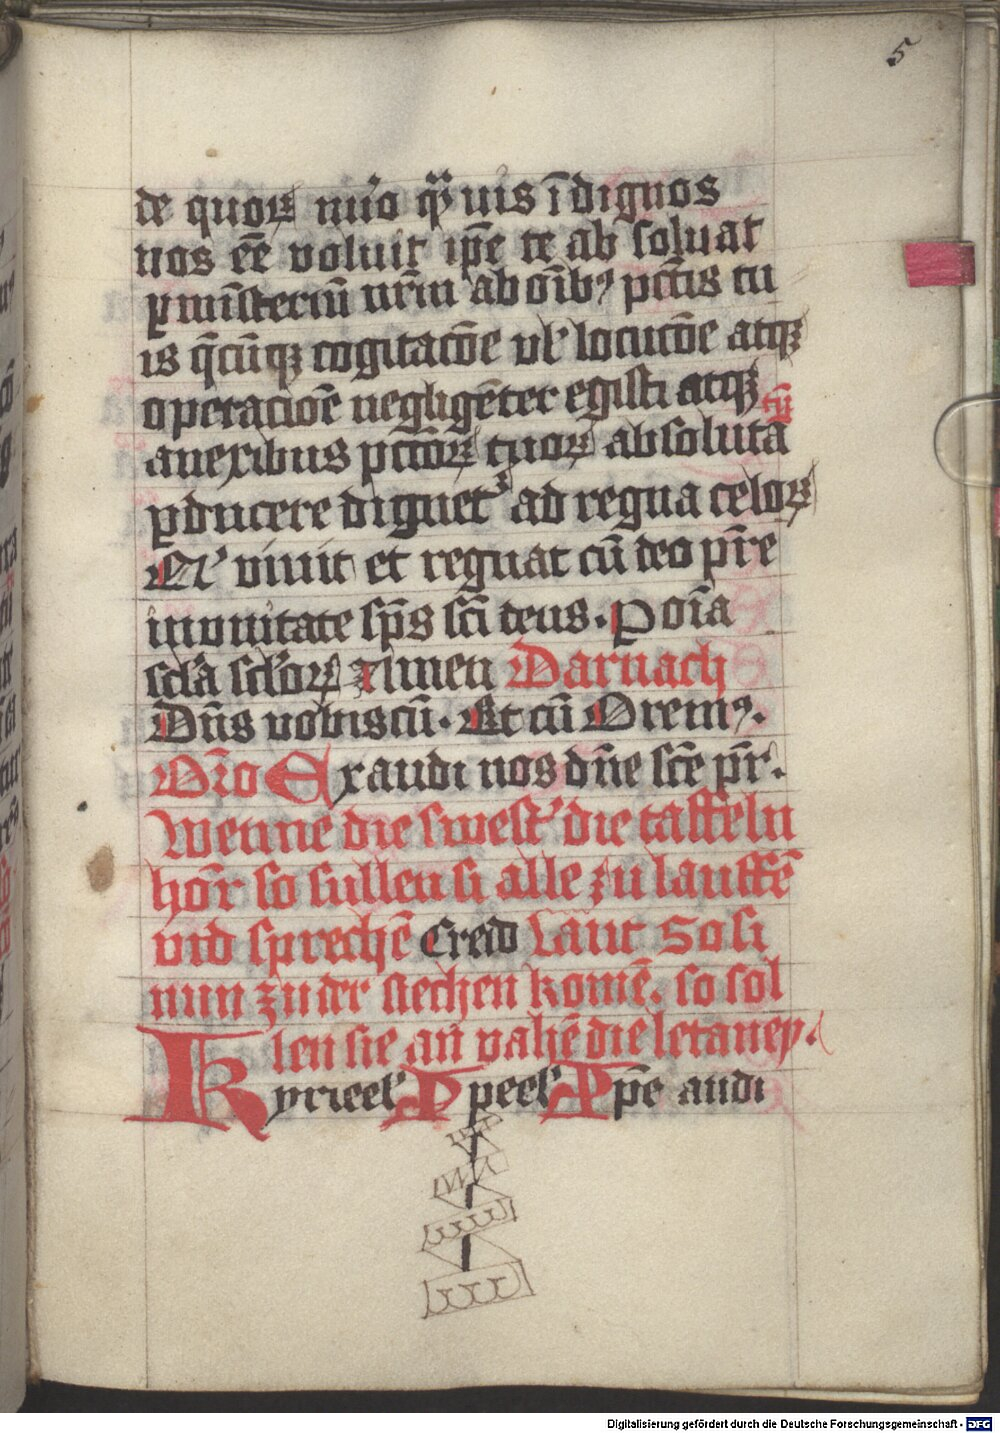 5
de quoꝝ nu͛o qͣuis īdignos
nos eē voluit ip̄e te ab soluat
ꝑ mīsteriū nr̄m ab oīb⁹ pctīs tu
is q̄cūqꝫ cogitacōe vl̛ locucōe atqꝫ
operacioē negligēter egisti atqꝫ
anexibus pctōꝝ tuoꝝ absoluta
tū
ꝑducere dignet᷑ ad regna celoꝝ
Q̇ viuit et regnat cū deo pr̄e
in vnitate sp̄s sc̄i deus. P oīa
scl̄a scl̄oꝝ Amen Darnach
Dn̄s vobiscū. Et cū Orem⁹.
Or̄o Exaudi nos dn̄e sc̄e pr̄.
Wenne die swest̛ die taffeln
hōr so sullen si alle zu lauffē
vnd sprechē Creid Laut So si
nun zu der siechen komē. so sol
len sie an vahē die letaney.
Kyrieel̛ Xpeel̛ Xp̄e audi
Digitalisierung gefördert durch die Deutsche Forschungsgemeinschaft - DFG